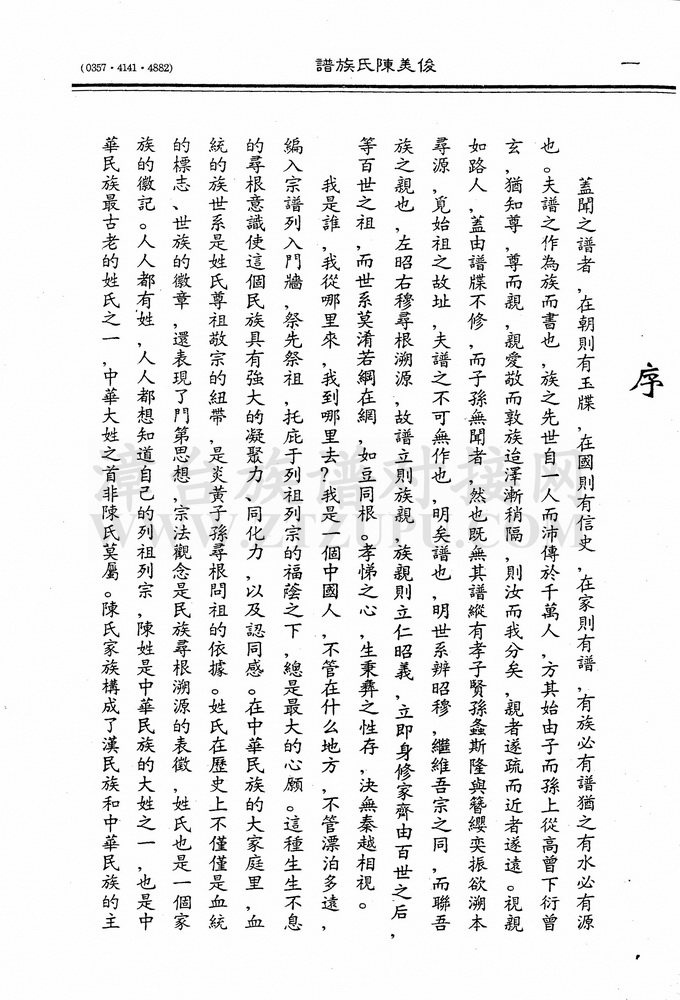 一
俊美陳氏族譜
(0357·4141·4882)
序
蓋聞之譜者,在朝則有玉牒,在國則有信史,在家則有譜,有族必有譜猶之有水必有源
也。夫譜之作為族而書也,族之先世自一人而沛傳於千萬人,方其始由子而孫上從高曾下衍曾
玄,猶知尊,尊而親,親愛敬而敦族迨澤漸稍隔,則汝而我分矣,親者遂疏而近者遂遠。視親
如路人,蓋由譜牒不修,而子孫無聞者,然也既無其譜縱有孝子賢孫螽斯隆與簪纓奕振欲溯本
尋源,覓始祖之故址,夫譜之不可無作也,明矣譜也,明世系辨昭穆,繼維吾宗之同,而聯吾
族之親也,左昭右穆尋根溯源,故譜立則族親,族親則立仁昭義,立即身修家齊由百世之后,
等百世之祖,而世系莫淆若綱在網,如豆同根。孝悌之心,生秉彝之性存,決無秦越相視。
我是誰,我從哪里來,我到哪里去?我是一個中國人,不管在什么地方,不管漂泊多遠,
編入宗譜列入門牆,祭先祭祖,托庇于列祖列宗的福蔭之下,總是最大的心願。這種生生不息
的尋根意識使這個民族具有強大的凝聚力、同化力,以及認同感。在中華民族的大家庭里,血
統的族世系是姓氏尊祖敬宗的紐帶,是炎黃子孫尋根問祖的依據。姓氏在歷史上不僅僅是血統
的標志、世族的徽章,還表現了門第思想,宗法觀念是民族尋根溯源的表徵,姓氏也是一個家
族的徽記。人人都有姓,人人都想知道自己的列祖列宗,陳姓是中華民族的大姓之一,也是中
華民族最古老的姓氏之一,中華大姓之首非陳氏莫屬。陳氏家族構成了漢民族和中華民族的主
漳台族譜对接网
WWW.ZTZUPU.COM